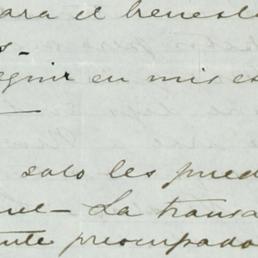 para el bienest
s-
eguir en mis es
solo les pued
que- La transa
nte preocupado